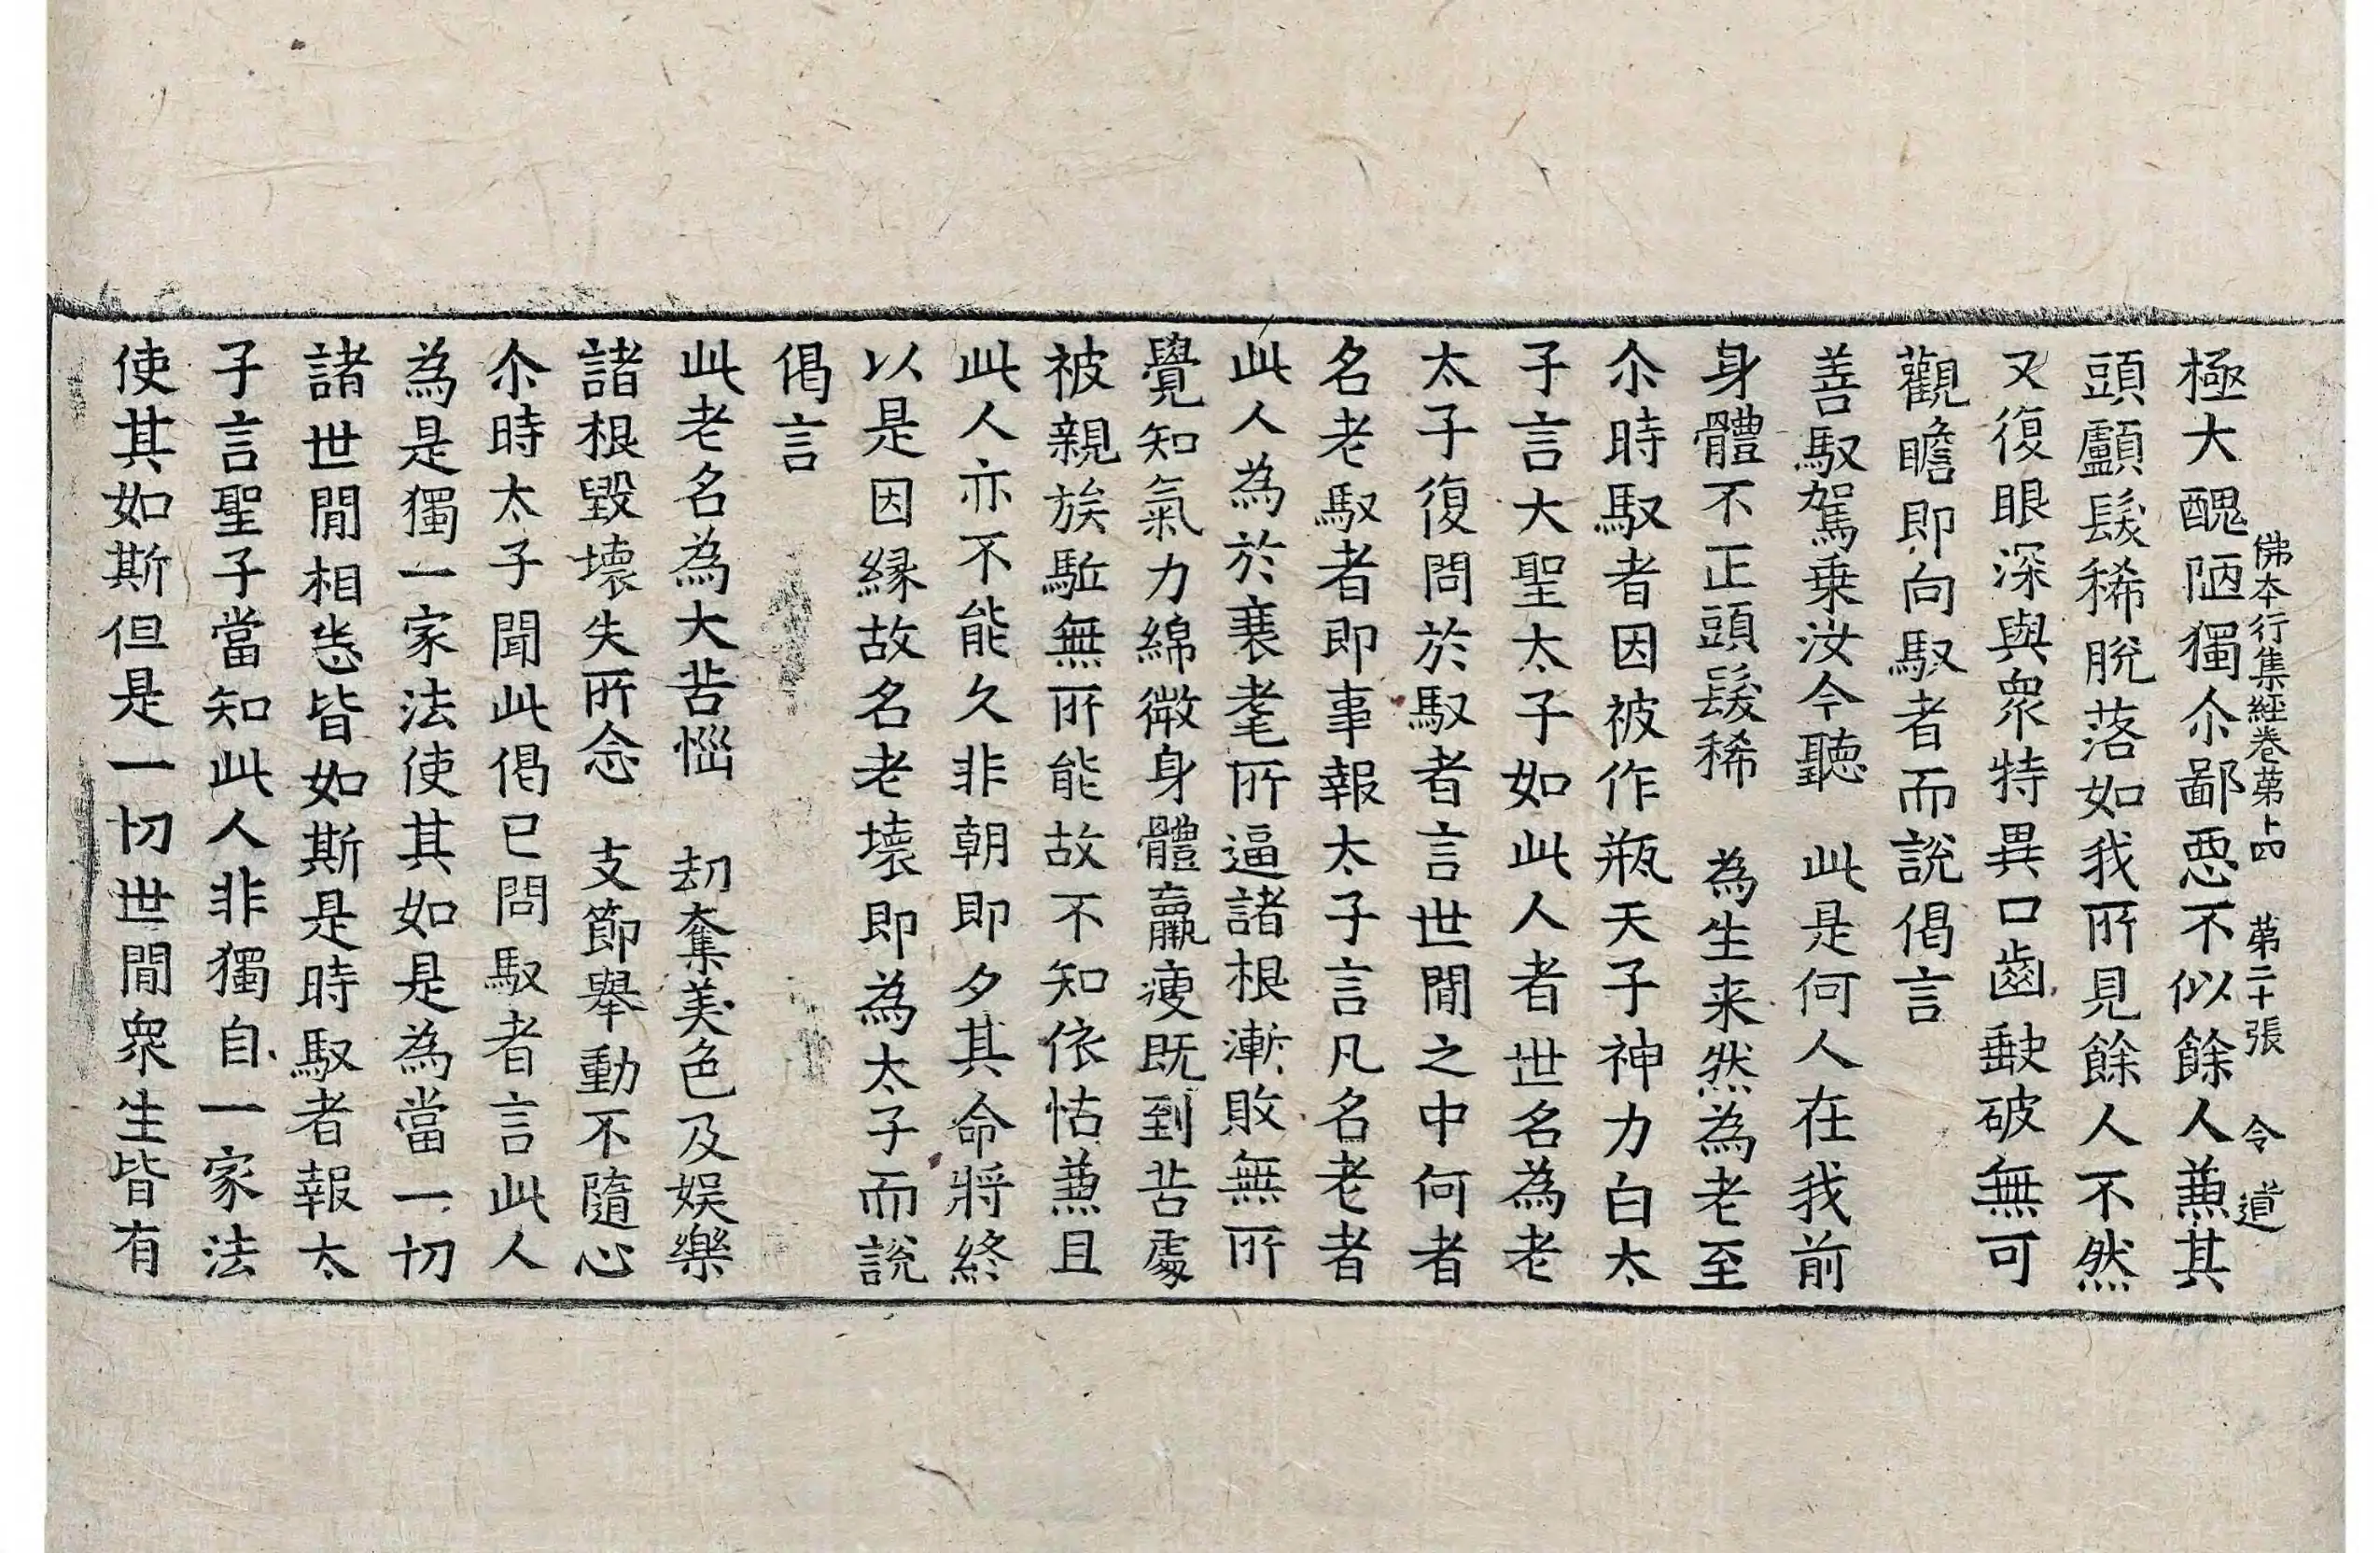 佛本行集經卷苐十四 苐二十張 令 道
極大醜陋獨尒鄙惡不似餘人蕪其
頭顱髮稀脫落如我所見餘人不然
又復眼深與衆特異口齒缺破無可
觀瞻即向馭者而說偈言
善馭駕乗汝今聽 此是何人在我前
身體不正頭髮稀 為生来然為老至
尒時馭者因被作瓶天子神力白太
子言大聖太子如此人者世名為老
太子復問於馭者言世間之中何者
名老馭者即事報太子言凡名老者
此人為於衰耄所逼諸根漸敗無所
覺知氣力綿微身體羸瘦既到苦處
被親族駈無所能故不知依怙兼且
此人亦不能久非朝即夕其命將終
以是因緣故名老壞即為太子而說
偈言
此老名為大苦惱 刧奪美色及娛樂
諸根毀壞失所念 支節舉動不隨心
尒時太子聞此偈已問馭者言此人
為是獨一家法使其如是為當一切
諸世間相悉皆如斯是時馭者報太
子言聖子當知此人非獨自一家法
使其如斯但是一切世間衆生皆有